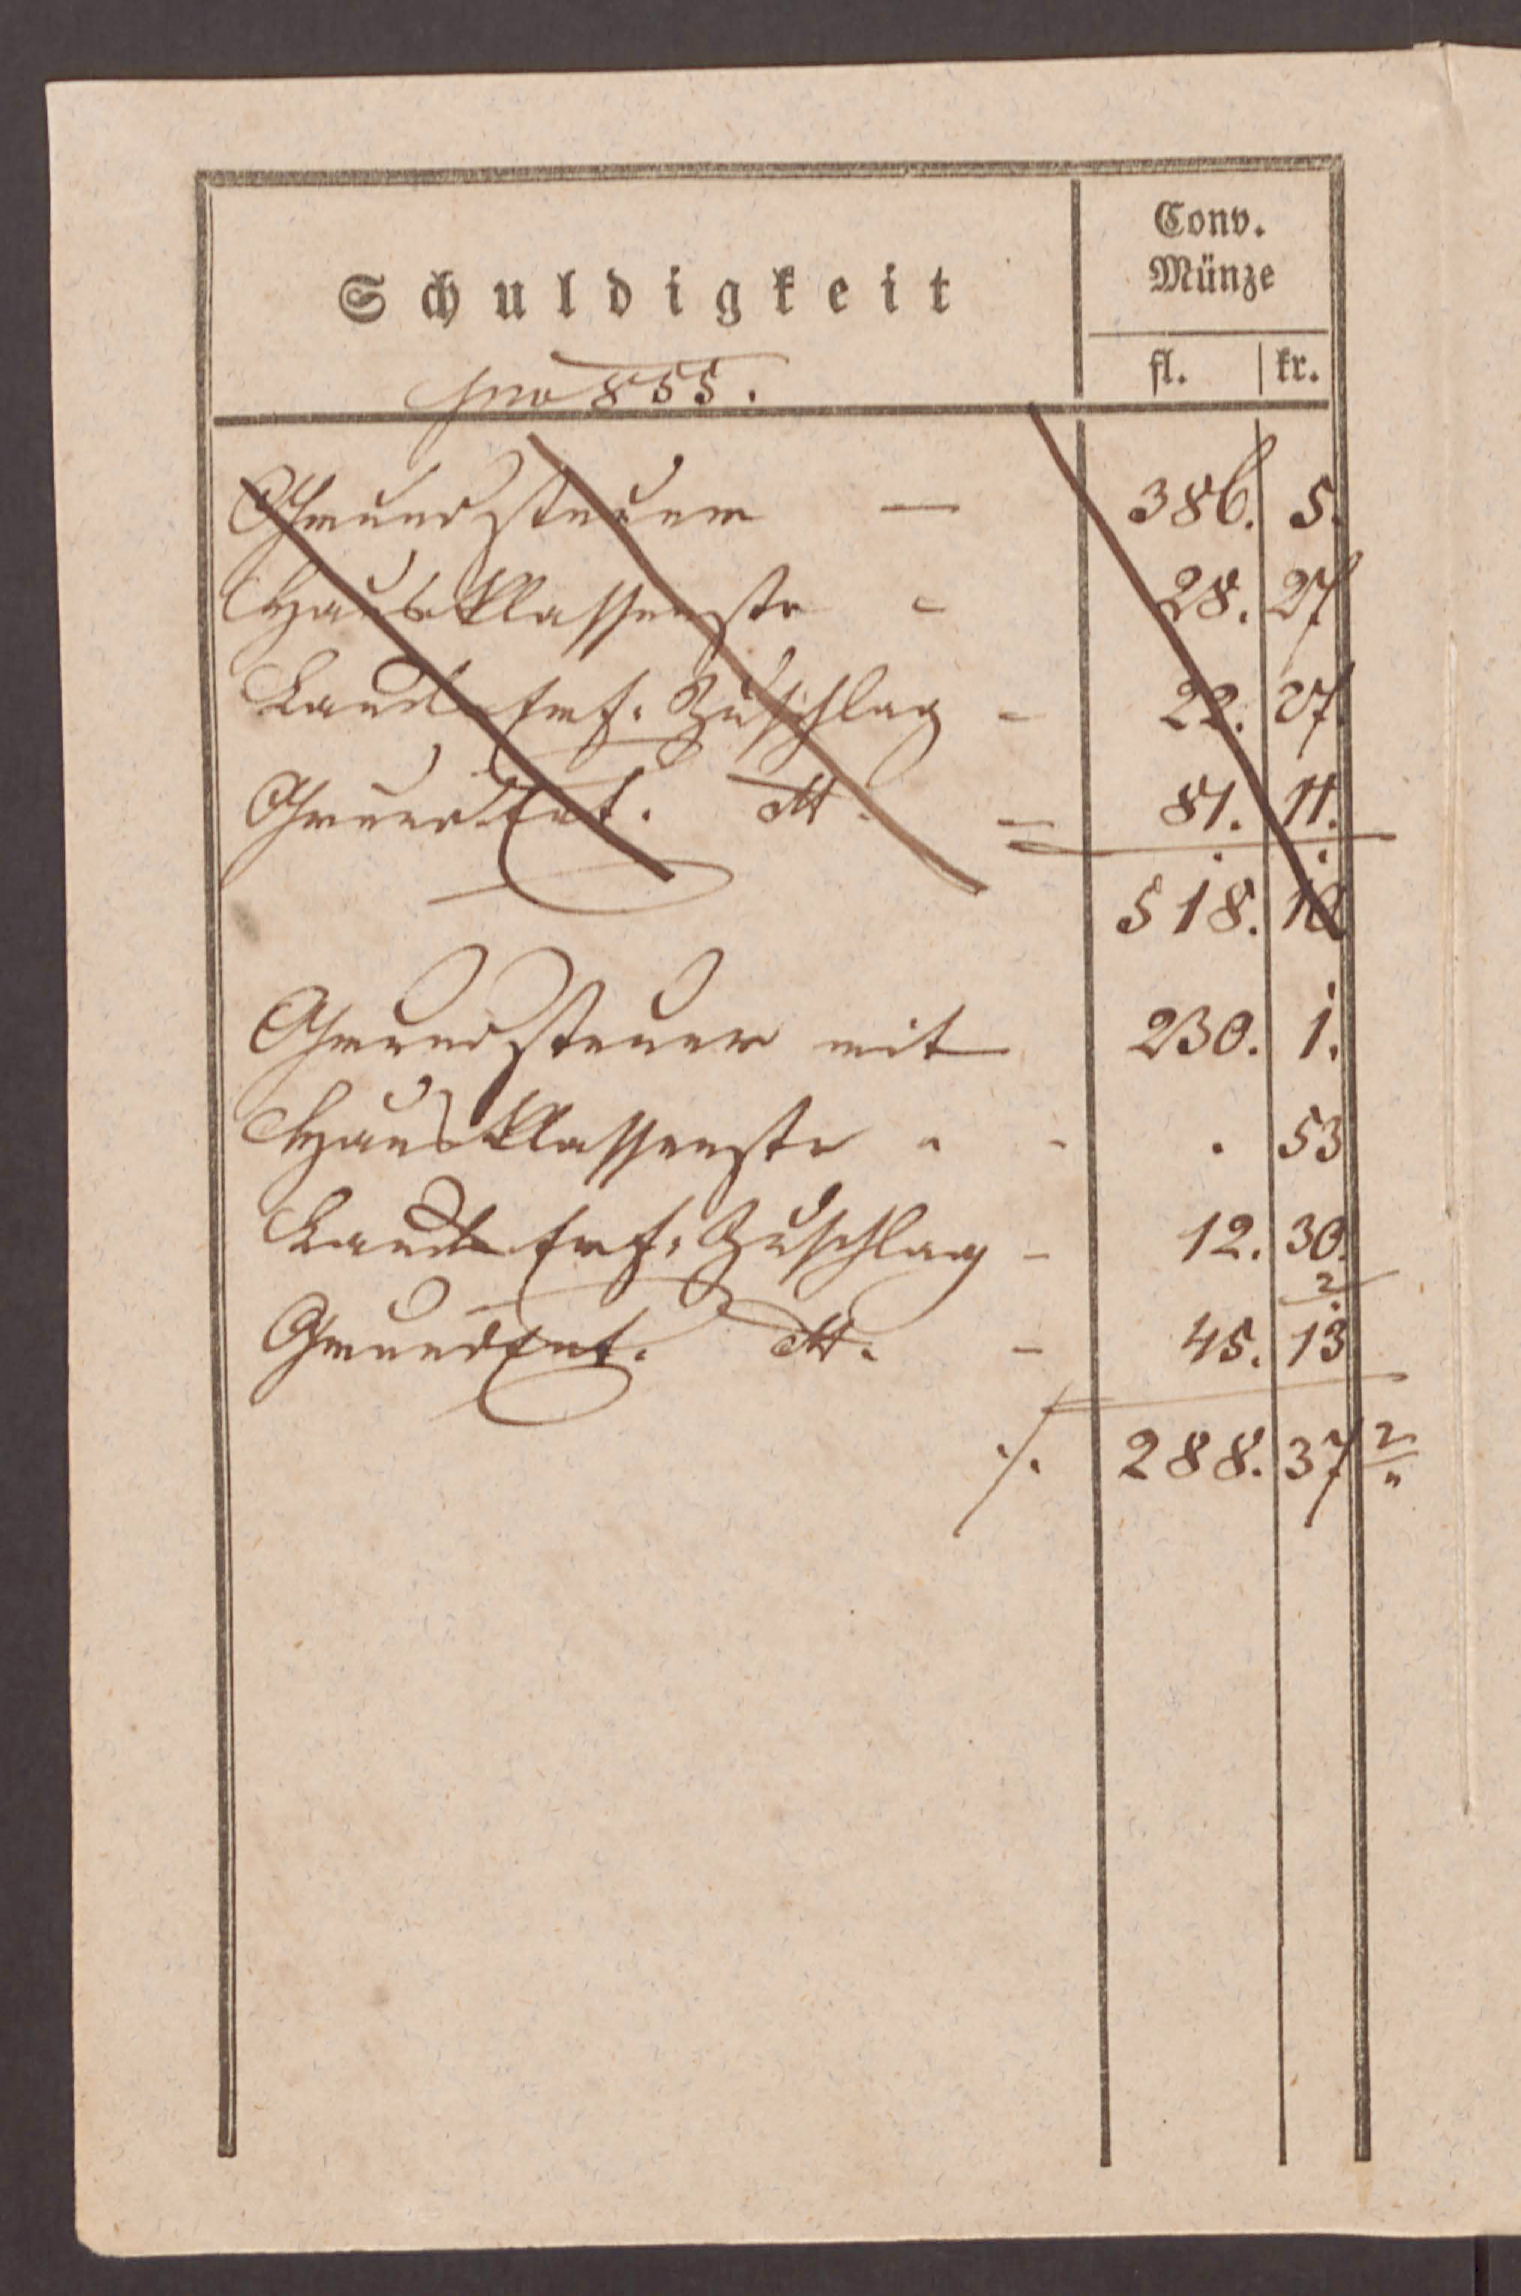 Schuldigkeit
pro 855.
Conv.
Münze
fl. kr.
Grundsteuer — 386. 5.
Hausklassenste - 28. 27
Lands Erf. Zuschlag - 22. 27
GrundEnt. dtt. - 81. 11.
518. 10
Grundsteuer mit 230. 1.
Hausklassenste " - . 53
Lands Erf. Zuschlag - 12. 30.
GrundEnt. dtt. - 45. 13 2
./. 288. 37 2